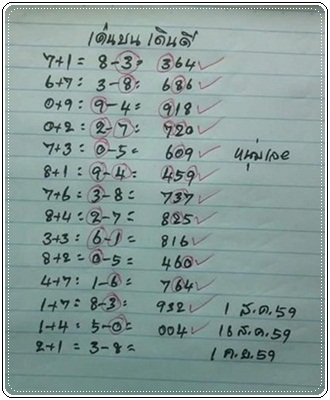 เด่นบน เดินดี
7+1 = 8-3= 364 ✓
6+7 = 3-8= 686 ✓
0+9 = 9-4= 918 ✓
0+2 = 2-7= 920 ✓
7+3 = 0-5= 609 ✓
8+1 = 9-4= 459 ✓
7+6 = 3-8= 737 ✓
8+4 = 2-7= 825 ✓
3+3 = 6-1= 816 ✓
8+2 = 0-5= 460 ✓
4+7 = 1-6= 764 ✓
1+7 = 8-3= 932 ✓ 1 ส.ค.59
1+4 = 5-0= 004 ✓ 16 ส.ค.59
2+1 = 3-8= 1 ก.ย.59